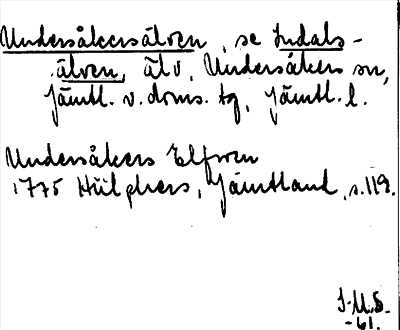 Undersåkersälven, se Indals-
älven, älv, Undersåkers sn,
Jämtl. v. doms. tg, Jämtl. l.
Undersåkers Elfwen
1775 Hülphers, Jämtland, s. 119.
J.M.S.
-61.